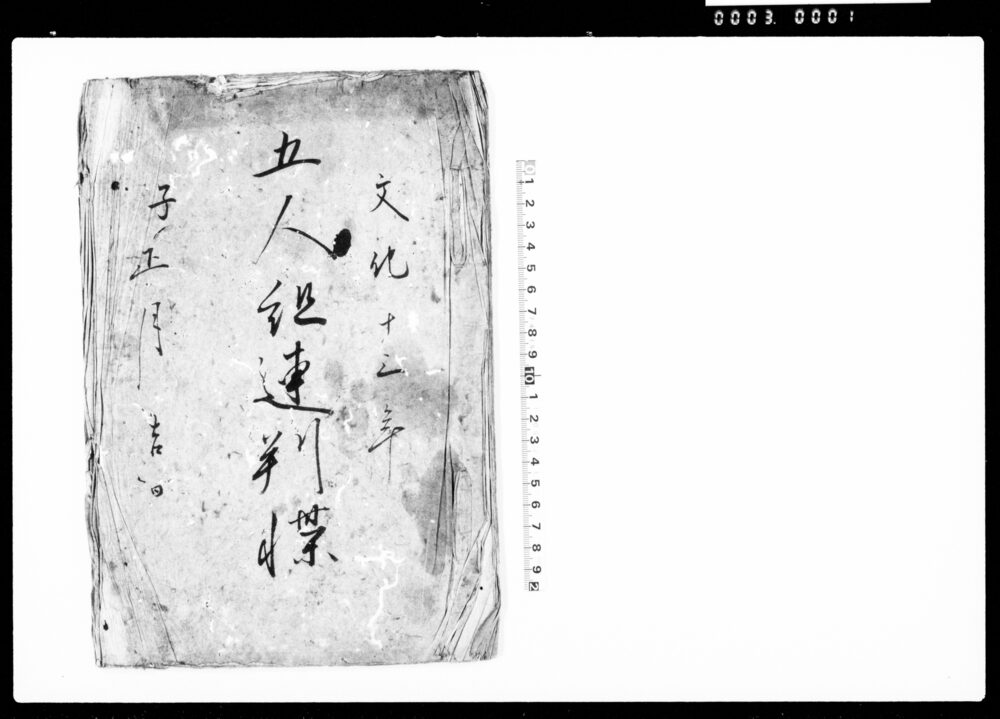 0003. 0001
文化十三年
五人組連判牒
子正月吉日
0 1 2 3 4 5 6 7 8 9 10 1 2 3 4 5 6 7 8 9 2